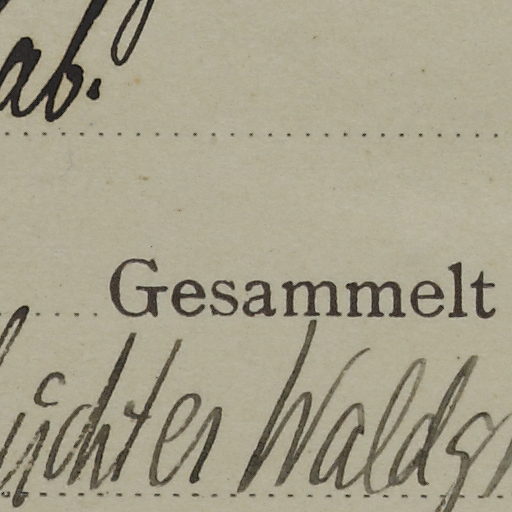 ab.
Gesammelt
lichter Waldgr